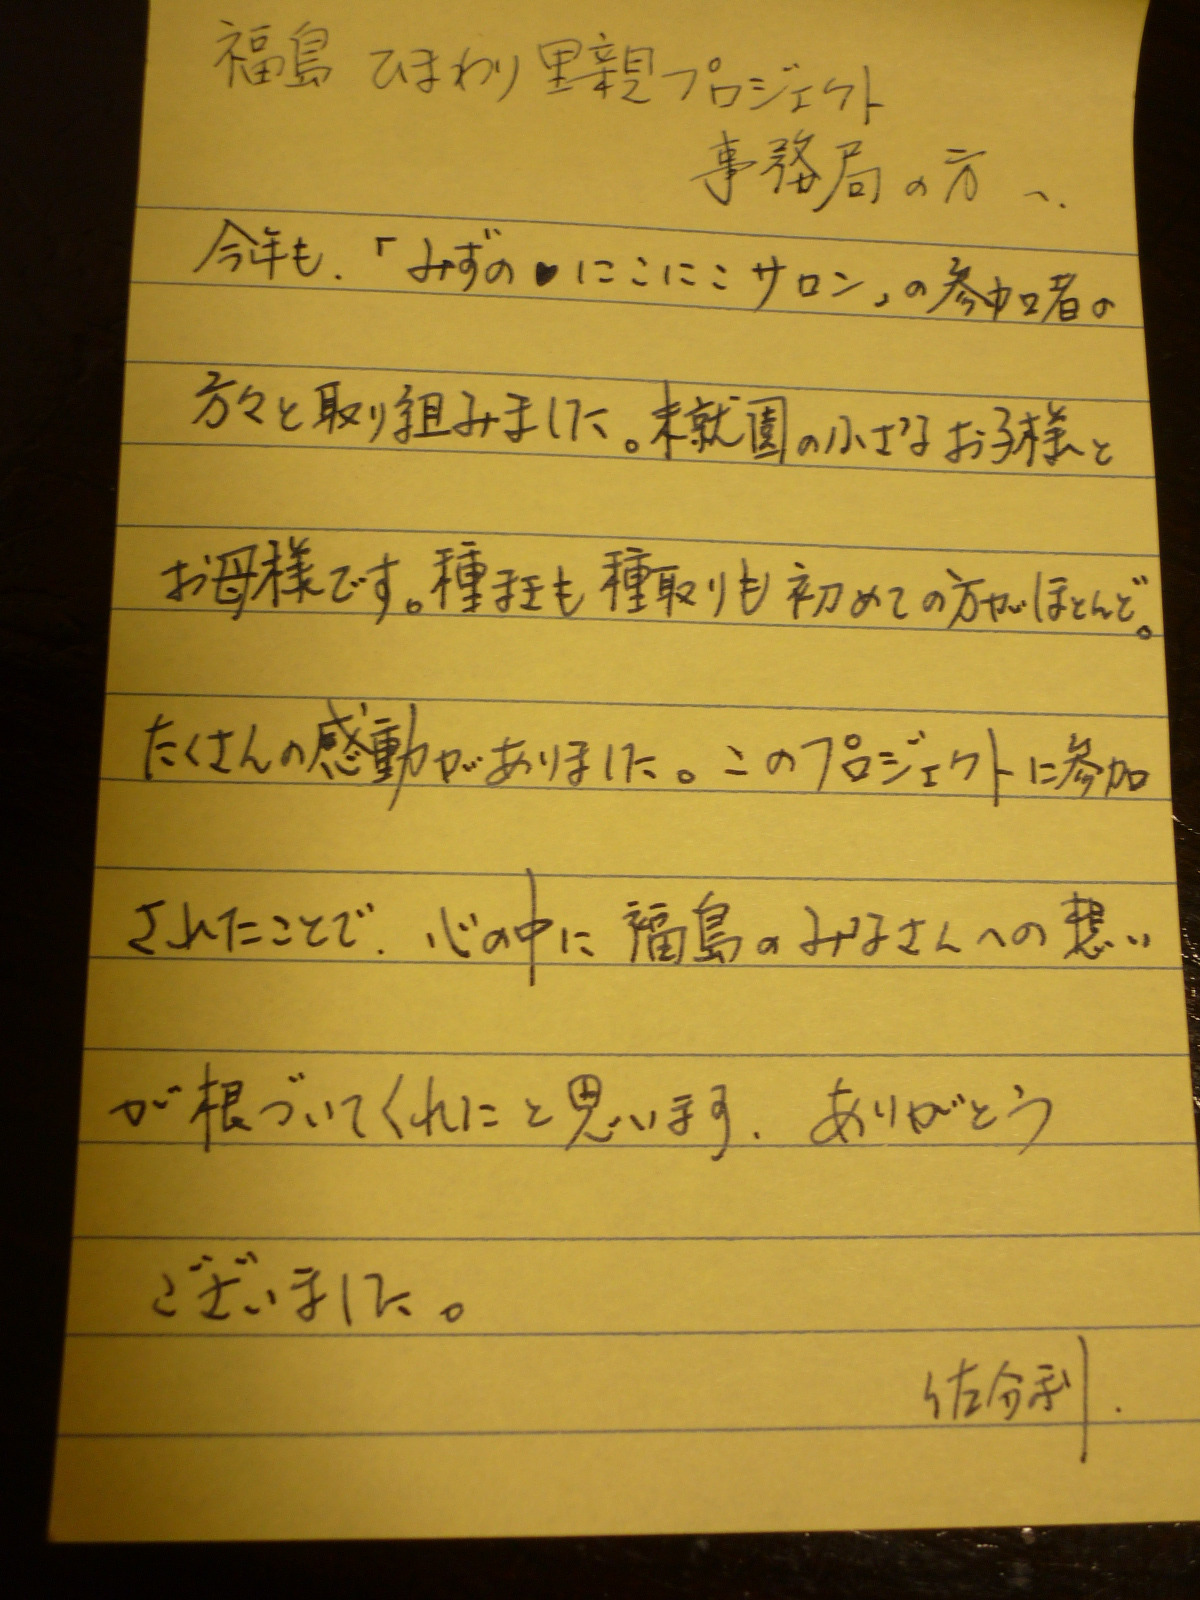 福島 ひまわり里親プロジェクト
事務局の方へ.
今年も.「みずの♥にこにこサロン」の参加者の
方々と取り組みました。未就園の小さなお子様と
お母様です。種まきも種取りも初めての方がほとんど。
たくさんの感動がありました。このプロジェクトに参加
されたことで.心の中に福島のみなさんへの想い
が根づいてくれたと思います.ありがとう
ございました。
佐分利.